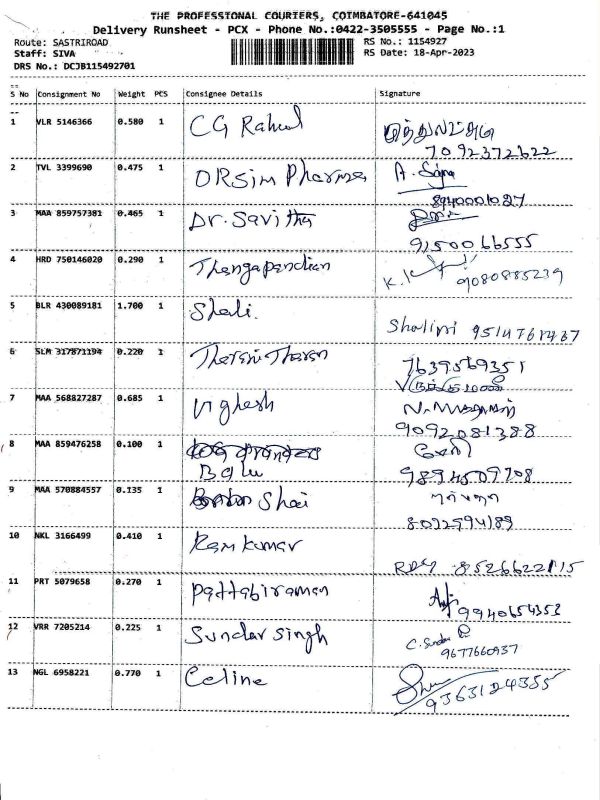 THE PROFESSIONAL COURIERS, COIMBATORE-641045
Delivery Runsheet - PCX - Phone No.:0422-3505555 - Page No.:1
Route: SASTRIROAD RS No.: 1154927
Staff: SIVA RS Date: 18-Apr-2023
DRS No.: DCJB115492701
S No Consignment No Weight PCS Consignee Details Signature
1 VLR 5146366 0.580 1 CG Rahul முத்துலட்சுமி
7092372622
2 TVL 3399690 0.475 1 DRSim Pharma A. Sajna
8940001027
3 MAA 859757381 0.465 1 Dr. Savitha
9150066555
4 HRD 750146020 0.290 1 Thangapandian K.
9080885239
5 BLR 430089181 1.700 1 Shali.
Shalini 9514761437
6 SLM 317871194 0.220 1 7639569351
7 MAA 568827287 0.685 1 Vighesh
9092081388
8 MAA 859476258 0.100 1
Balu 9894509708
9 MAA 570884557 0.135 1 Shai
8072594189
10 NKL 3166499 0.410 1 Ramkumar
11 PRT 5079658 0.270 1 Pattabiraman
9940654353
12 VRR 7205214 0.225 1 Sundar Singh C. Sundar
9677660937
13 NGL 6958221 0.770 1 Celine
9363124355